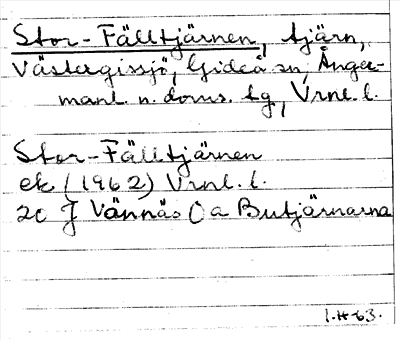 Stor-Fälltjärnen, tjärn,
Västergissjö, Gideå sn, Ånger-
manl. n. doms. tg, Vrnl. l.
Stor-Fälltjärnen
ek (1962) Vrnl. l.
2c J Vännäs () a Butjärnarna
63.